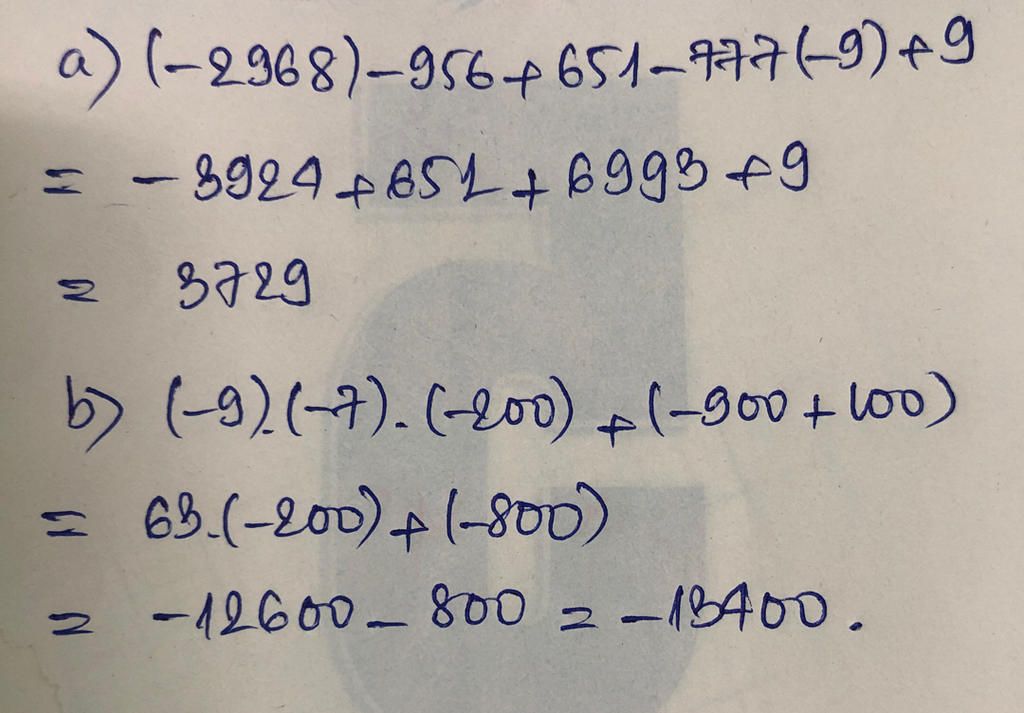 a) (-2968)-956+651-777(-9)+9
= -3924+651+6993+9
= 3729
b) (-9).(-7).(-200)+(-900+100)
= 63.(-200)+(-800)
= -12600-800 = -13400.